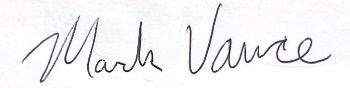 Mark Vance